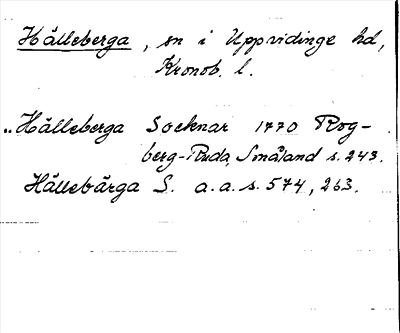 Hälleberga, sn i Uppvidinge hd,
Kronob. l.
"Hälleberga Socknar 1770 Rog-
berg-Ruda, Småland s. 243.
Hällebärga S. a.a. s. 574, 263.